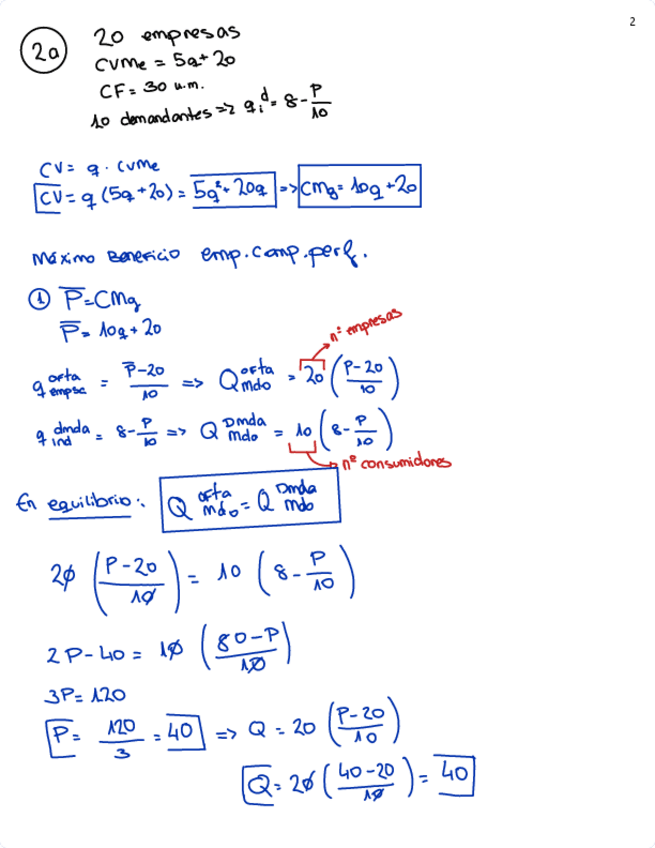 2
2a
20 empresas
CVMe = 5q+20
CF= 30 u.m.
10 demandantes => q_i^d = 8 - P/10
CV= q · CVMe
CV= q (5q+20) = 5q²+20q => CMg= 10q+20
Máximo Beneficio emp.comp.perf.
① P̅=CMg
P̅= 10q+20
nº empresas
q_empse^ofta = (P̅-20)/10 => Q_mdo^ofta = 20 ((P-20)/10)
q_ind^dmda = 8 - P/10 => Q_Mdo^Dmda = 10 (8 - P/10)
nº consumidores
En equilibrio: Q_mdo^ofta = Q_mdo^Dmda
20 ((P-20)/10) = 10 (8 - P/10)
2P-40 = 10 ((80-P)/10)
3P= 120
P= 120/3 = 40 => Q = 20 ((P-20)/10)
Q= 20 ((40-20)/10) = 40